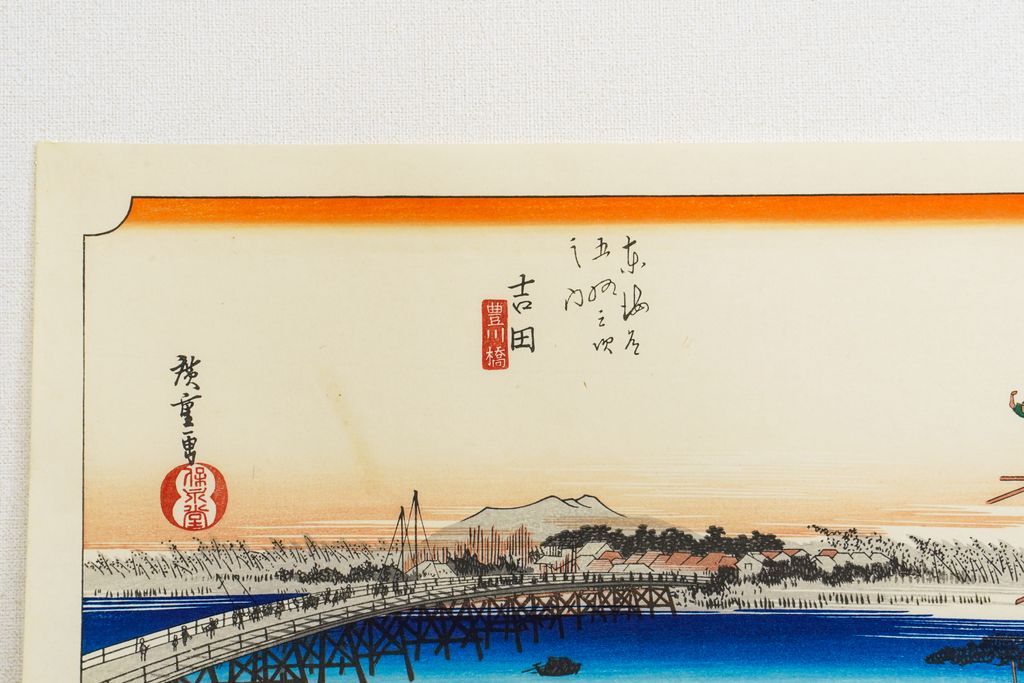 東海道
五拾三次
之内
吉田
豊川橋
廣重画
保永堂